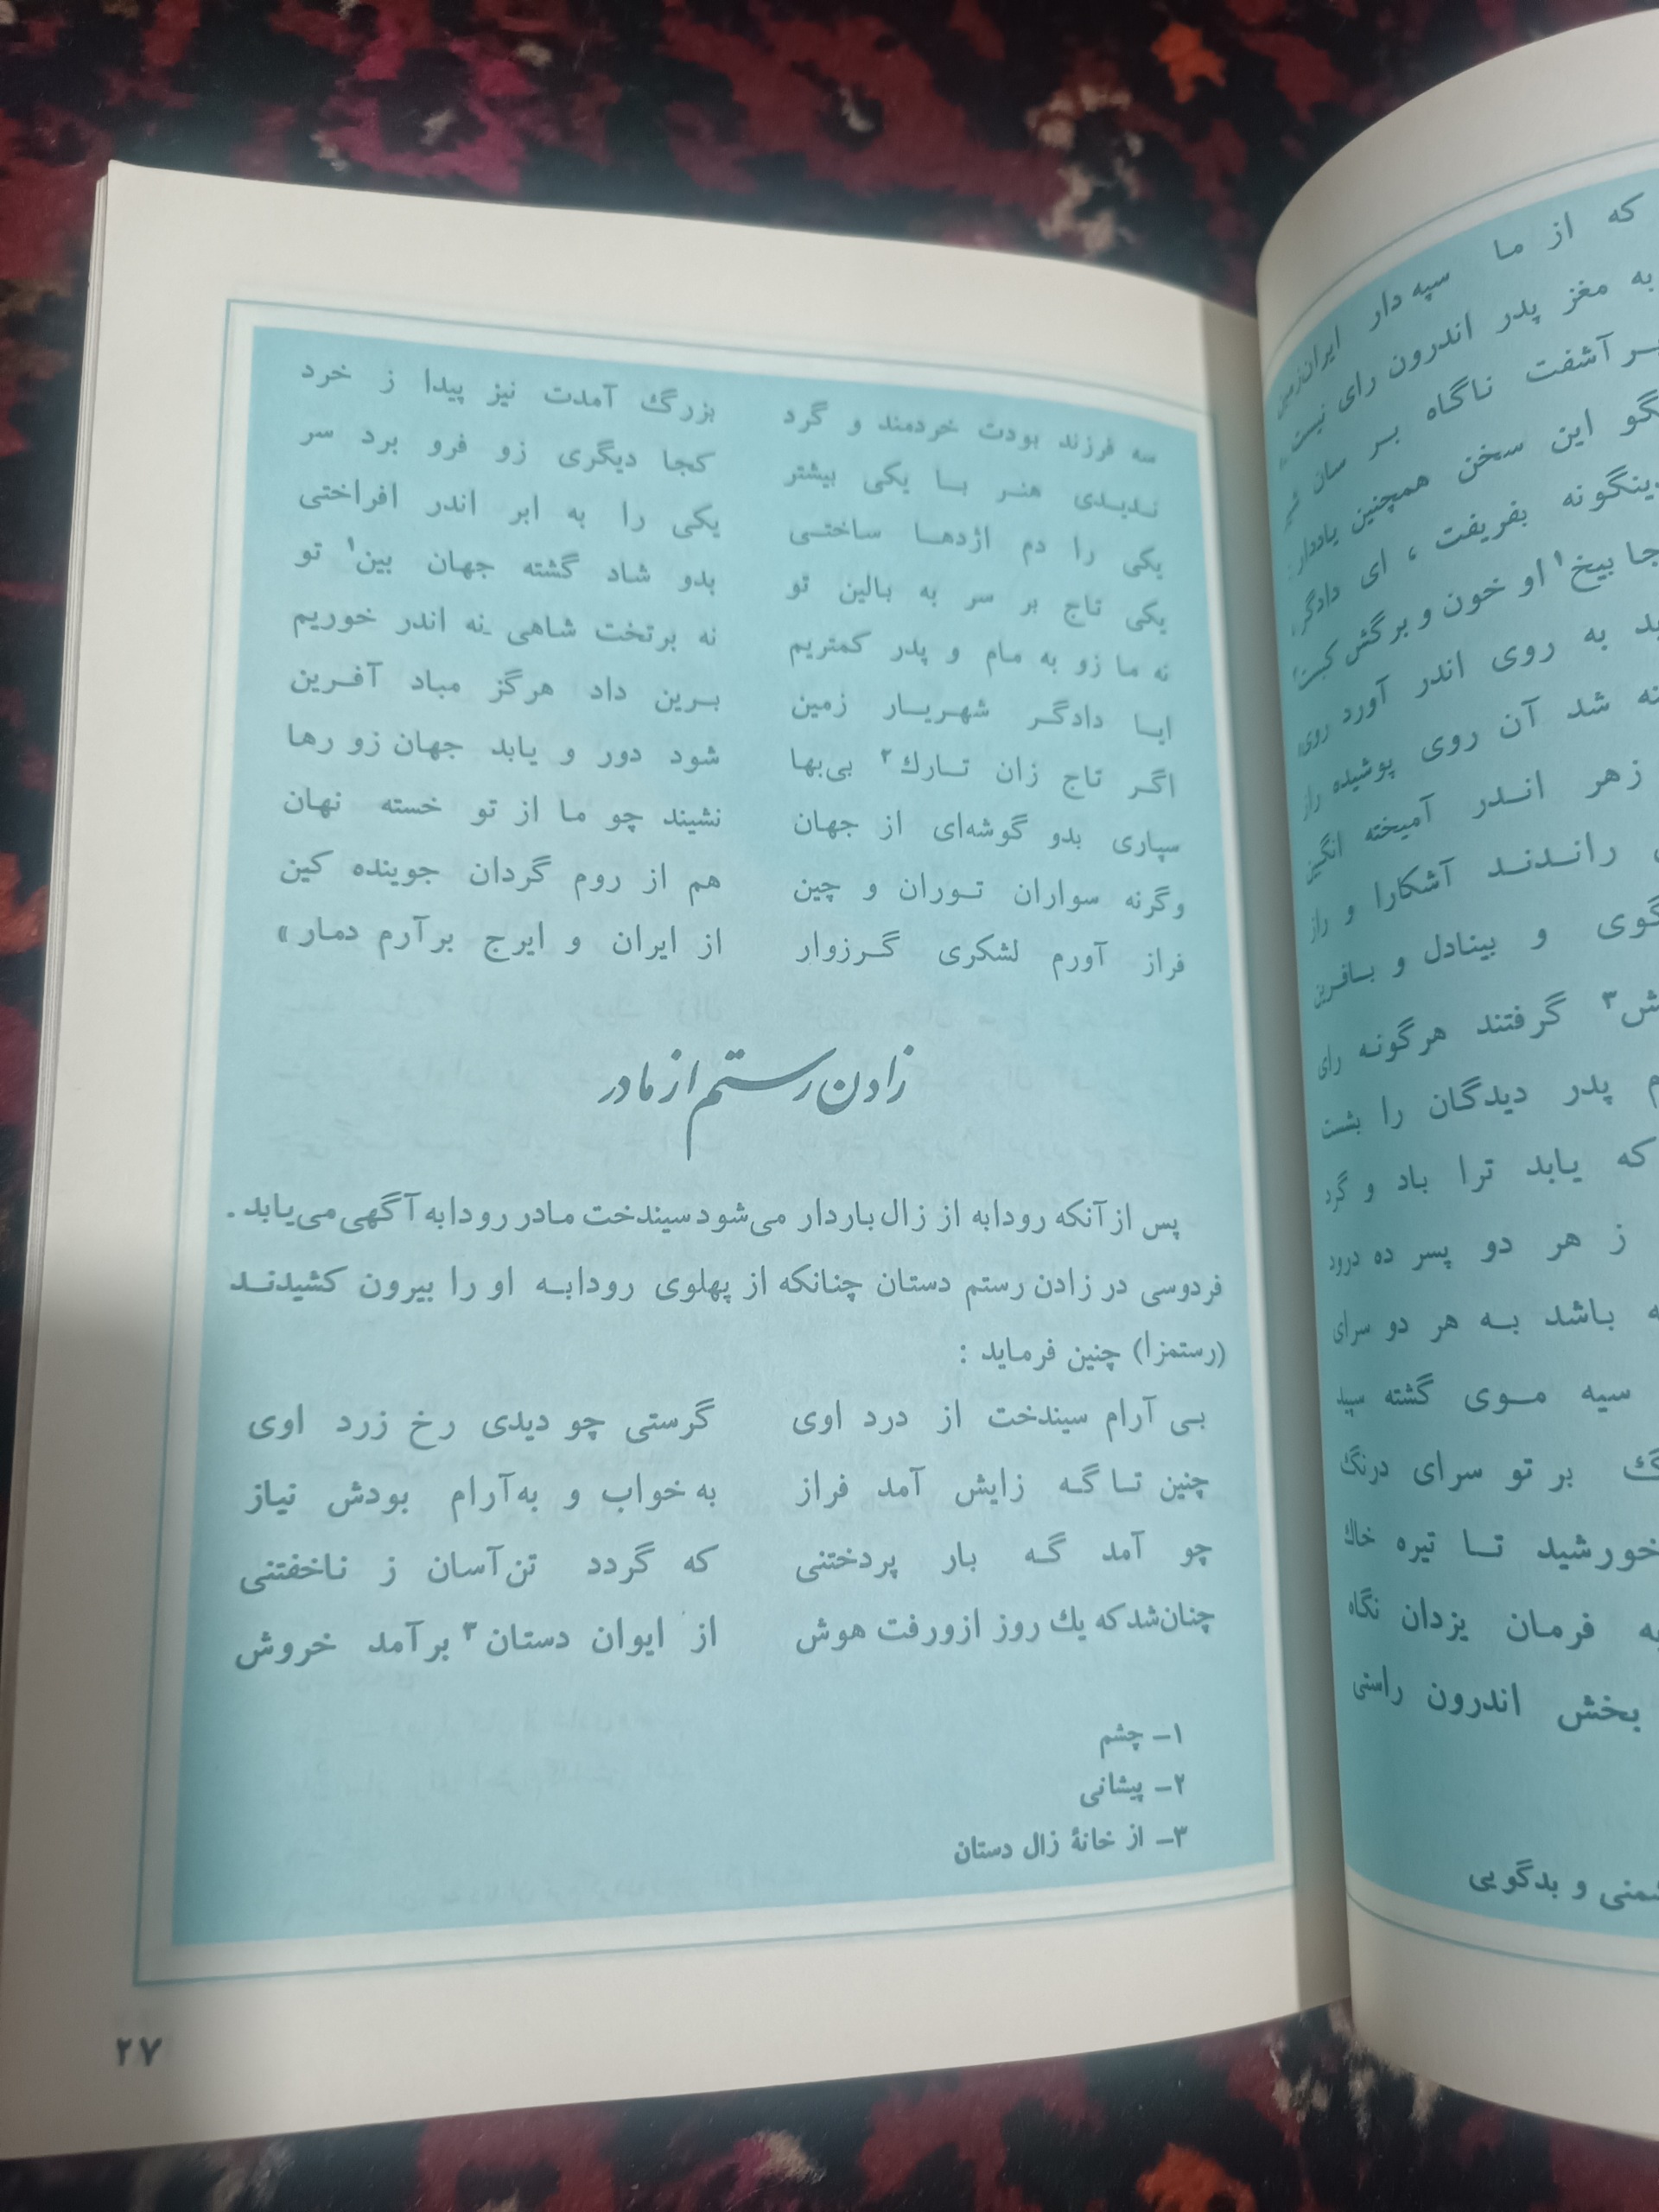 سه فرزند بودت خردمند و گرد بزرگ آمدت نیز پیدا ز خرد
ندیدی هنر با یکی بیشتر کجا دیگری زو فرو برد سر
یکی را دم اژدها ساختی یکی را به ابر اندر افراختی
یکی تاج بر سر به بالین تو بدو شاد گشته جهان بین۱ تو
نه ما زو به مام و پدر کمتریم نه برتخت شاهی نه اندر خوریم
ایا دادگر شهریار زمین برین داد هرگز مباد آفرین
اگر تاج زان تارك۲ بی‌بها شود دور و یابد جهان زو رها
سپاری بدو گوشه‌ای از جهان نشیند چو ما از تو خسته نهان
وگرنه سواران توران و چین هم از روم گردان جوینده کین
فراز آورم لشکری گرزوار از ایران و ایرج برآرم دمار»
زادن رستم از مادر
پس از آنکه رودابه از زال باردار می‌شود سیندخت مادر رودابه آگهی می‌یابد.
فردوسی در زادن رستم دستان چنانکه از پهلوی رودابه او را بیرون کشیدند
(رستمزا) چنین فرماید :
بی آرام سیندخت از درد اوی گرستی چو دیدی رخ زرد اوی
چنین تا گه زایش آمد فراز به خواب و به‌آرام بودش نیاز
چو آمد گه بار پردختنی که گردد تن‌آسان ز ناخفتنی
چنان‌شد که یك روز ازو رفت هوش از ایوان دستان۳ برآمد خروش
۱- چشم
۲- پیشانی
۳- از خانهٔ زال دستان
۲۷
که از ما سپه دار ایران‌زمین
به مغز پدر اندرون رای نیست
بر آشفت ناگاه بر سان
این سخن همچنین یاددار
بفریفت ، ای دادگر
بیخ۱ او خون و برگش کبست
به روی اندر آورد روی
شد آن روی پوشیده راز
زهر اندر آمیخته انگبین
راندند آشکارا و راز
و بینادل و بافرین
گرفتند هرگونه رای
پدر دیدگان را بشست
که یابد ترا باد و گرد
ز هر دو پسر ده درود
باشد به هر دو سرای
سیه موی گشته سپید
بر تو سرای درنگ
خورشید تا تیره خاك
فرمان یزدان نگاه
بخش اندرون راستی
و بدگویی